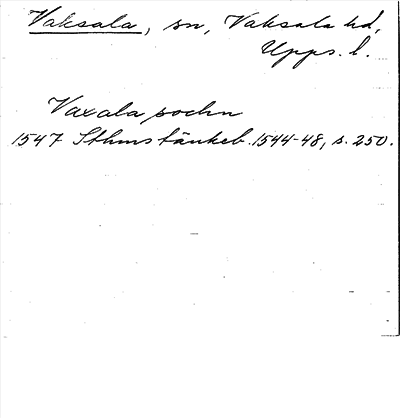 Vaksala, sn, Vaksala hd,
Upps. l.
Vaxala sochn
1547 Sthms tänkeb. 1544-48, s. 250.